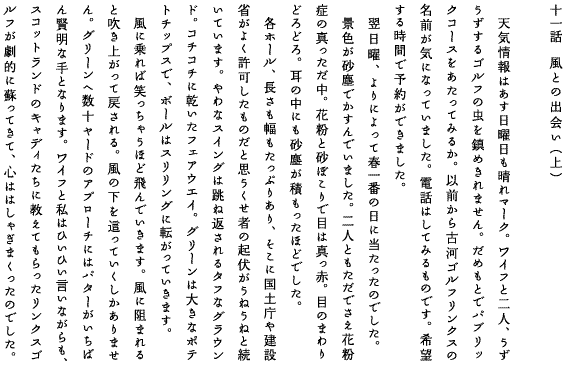 十一話　風との出会い（上）
　天気情報はあす日曜日も晴れマーク。ワイフと二人、うず
うずするゴルフの虫を鎮めきれません。だめもとでパブリッ
クコースをあたってみるか。以前から古河ゴルフリンクスの
名前が気になっていました。電話はしてみるものです。希望
する時間で予約ができました。
　翌日曜、よりによって春一番の日に当たったのでした。
　景色が砂塵でかすんでいました。二人ともただでさえ花粉
症の真っただ中。花粉と砂ぼこりで目は真っ赤。目のまわり
どろどろ。耳の中にも砂塵が積もったほどでした。
　各ホール、長さも幅もたっぷりあり、そこに国土庁や建設
省がよく許可したものだと思うくせ者の起伏がうねうねと続
いています。やわなスイングは跳ね返されるタフなグラウン
ド。コチコチに乾いたフェアウエイ。グリーンは大きなポテ
トチップスで、ボールはスリリングに転がっていきます。
　風に乗れば笑っちゃうほど飛んでいきます。風に阻まれる
と吹き上がって戻される。風の下を這っていくしかありませ
ん。グリーンへ数十ヤードのアプローチにはパターがいちば
ん賢明な手となります。ワイフと私はひいひい言いながらも、
スコットランドのキャディたちに教えてもらったリンクスゴ
ルフが劇的に蘇ってきて、心ははしゃぎまくったのでした。